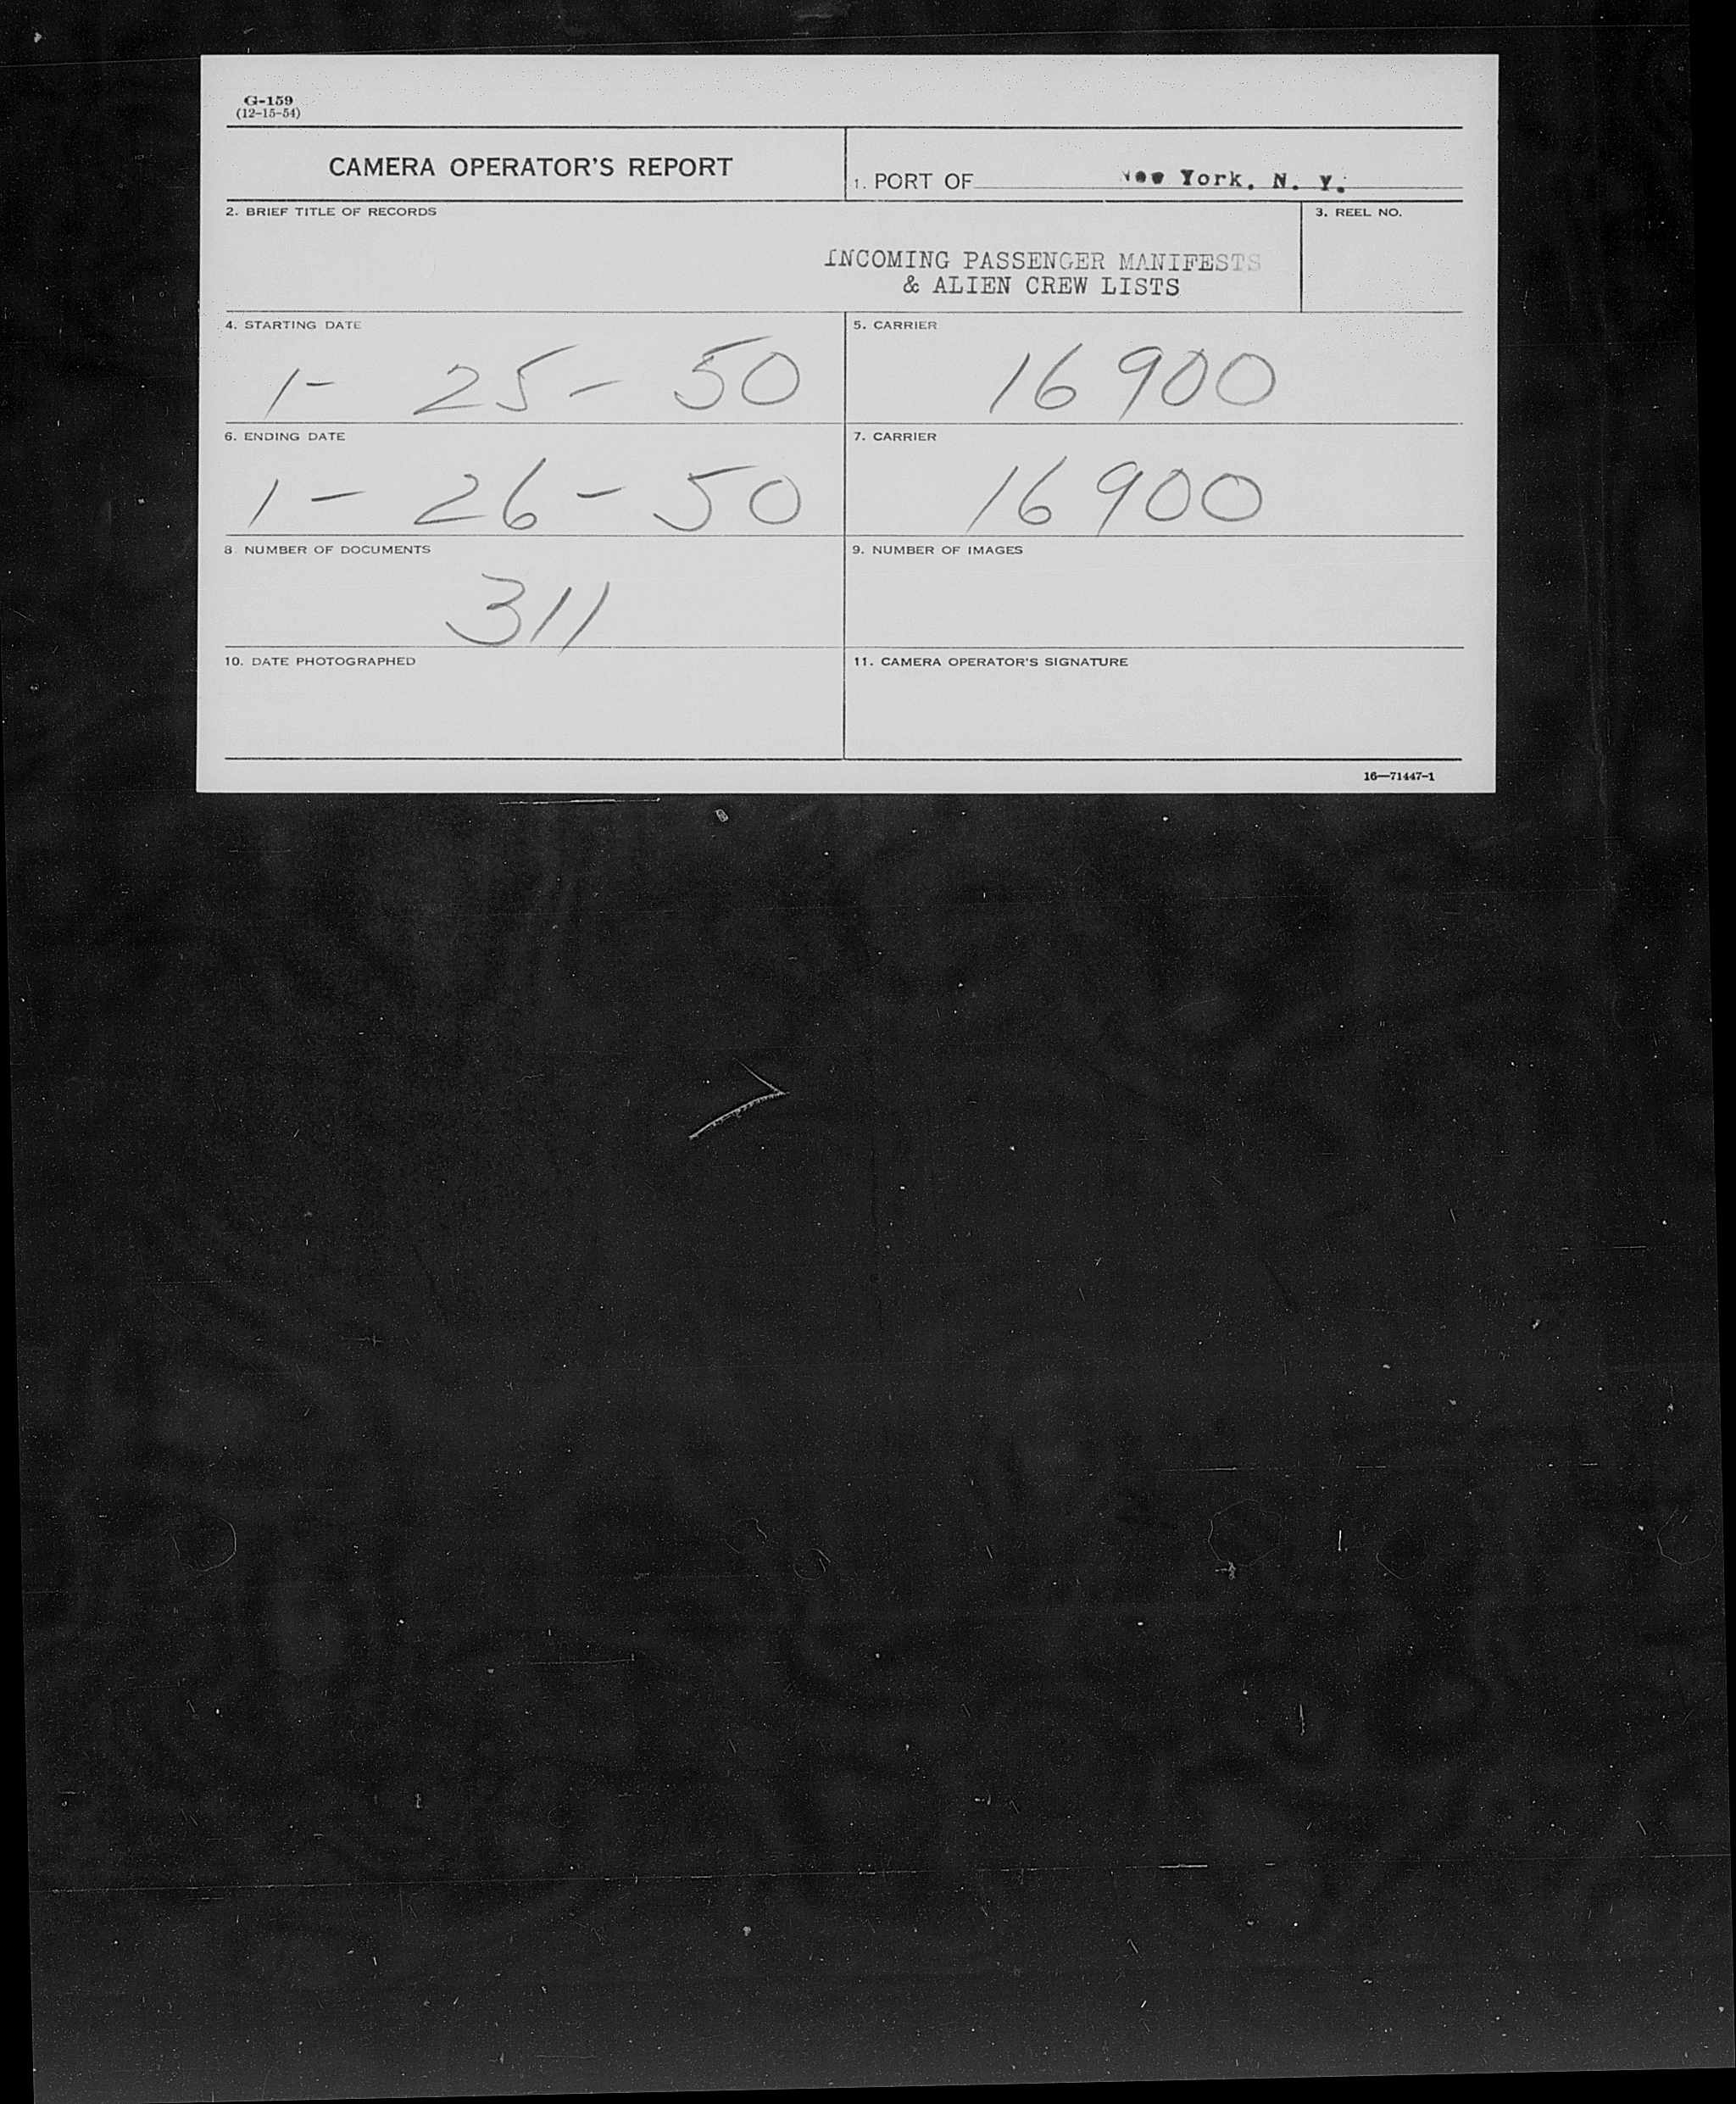 G-159
(12-15-54)
CAMERA OPERATOR'S REPORT
1. PORT OF New York, N. Y.
2. BRIEF TITLE OF RECORDS
3. REEL NO.
INCOMING PASSENGER MANIFESTS
& ALIEN CREW LISTS
4. STARTING DATE
1- 25- 50
5. CARRIER
16900
6. ENDING DATE
1- 26- 50
7. CARRIER
16900
8. NUMBER OF DOCUMENTS
311
9. NUMBER OF IMAGES
10. DATE PHOTOGRAPHED
11. CAMERA OPERATOR'S SIGNATURE
16—71447-1